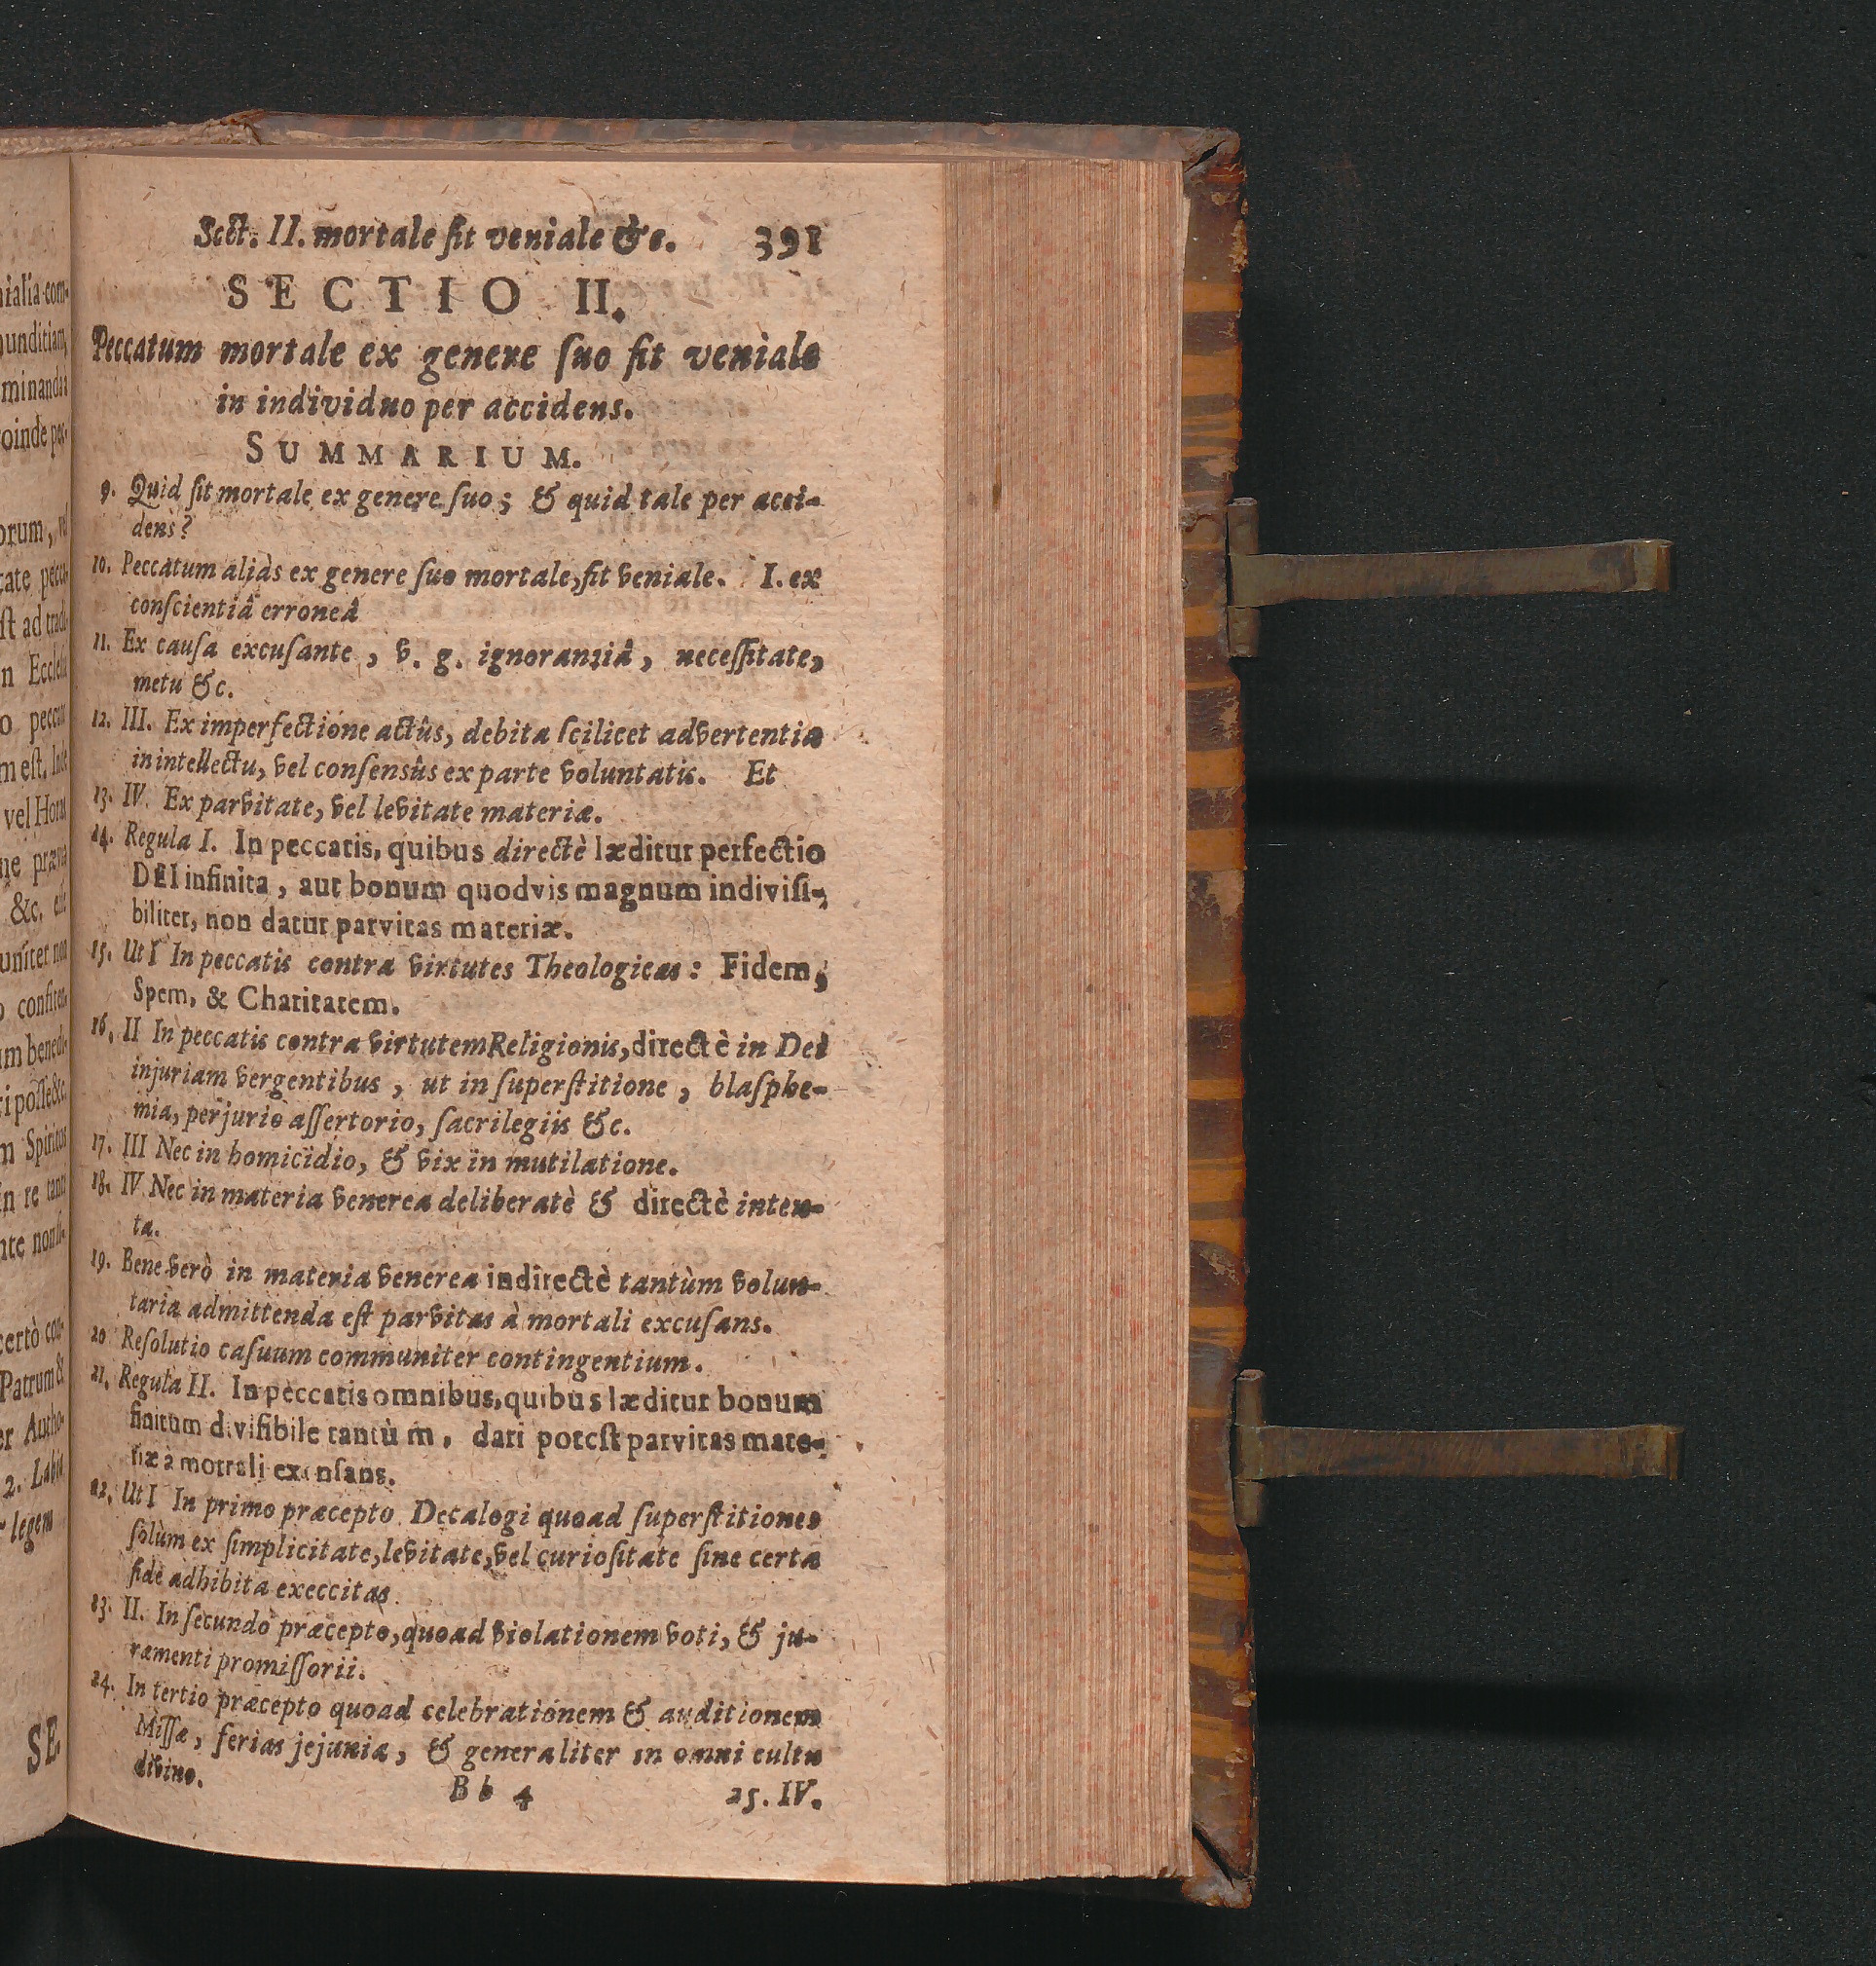 Sect. II. mortale fit veniale &c. 391
SECTIO II.
Peccatum mortale ex genere ſuo fit veniale
in individuo per accidens.
SUMMARIUM.
9. Quid ſit mortale ex genere ſuo; & quid tale per acci-
dens?
10. Peccatum aliàs ex genere ſuo mortale, fit veniale. I. ex
conſcientiâ erroneâ
11. Ex cauſa excuſante, v. g. ignorantiâ, neceſſitate,
metu &c.
12. III. Ex imperfectione actûs, debita ſcilicet advertentia
in intellectu, vel conſensûs ex parte voluntatis. Et
13. IV. Ex parvitate, vel levitate materiæ.
14. Regula I. In peccatis, quibus directè læditur perfectio
DEI infinita, aut bonum quodvis magnum indiviſi-
biliter, non datur parvitas materiæ.
15. Ut I In peccatis contra virtutes Theologicas: Fidem,
Spem, & Charitatem.
16. II In peccatis contra virtutem Religionis, directè in Dei
injuriam vergentibus, ut in ſuperſtitione, blaſphe-
mia, perjurio aſſertorio, ſacrilegiis &c.
17. III Nec in homicidio, & vix in mutilatione.
18. IV. Nec in materia venerea deliberatè & directè inten-
ta.
19. Bene verò in materia venerea indirectè tantùm volun-
taria admittenda eſt parvitas à mortali excuſans.
20 Reſolutio caſuum communiter contingentium.
21. Regula II. In peccatis omnibus, quibus læditur bonum
finitum diviſibile tantùm, dari poteſt parvitas mate-
riæ a mortali excuſans.
22. Ut I In primo præcepto Decalogi quoad ſuperſtitiones
ſolùm ex ſimplicitate, levitate, vel curioſitate ſine certa
fide adhibita execcitas.
23. II. In ſecundo præcepto, quoad violationem voti, & ju-
ramenti promiſſorii.
24. In tertio præcepto quoad celebrationem & auditionem
Miſſæ, ferias jejunia, & generaliter in omni cultu
divino.
Bb 4 25. IV.